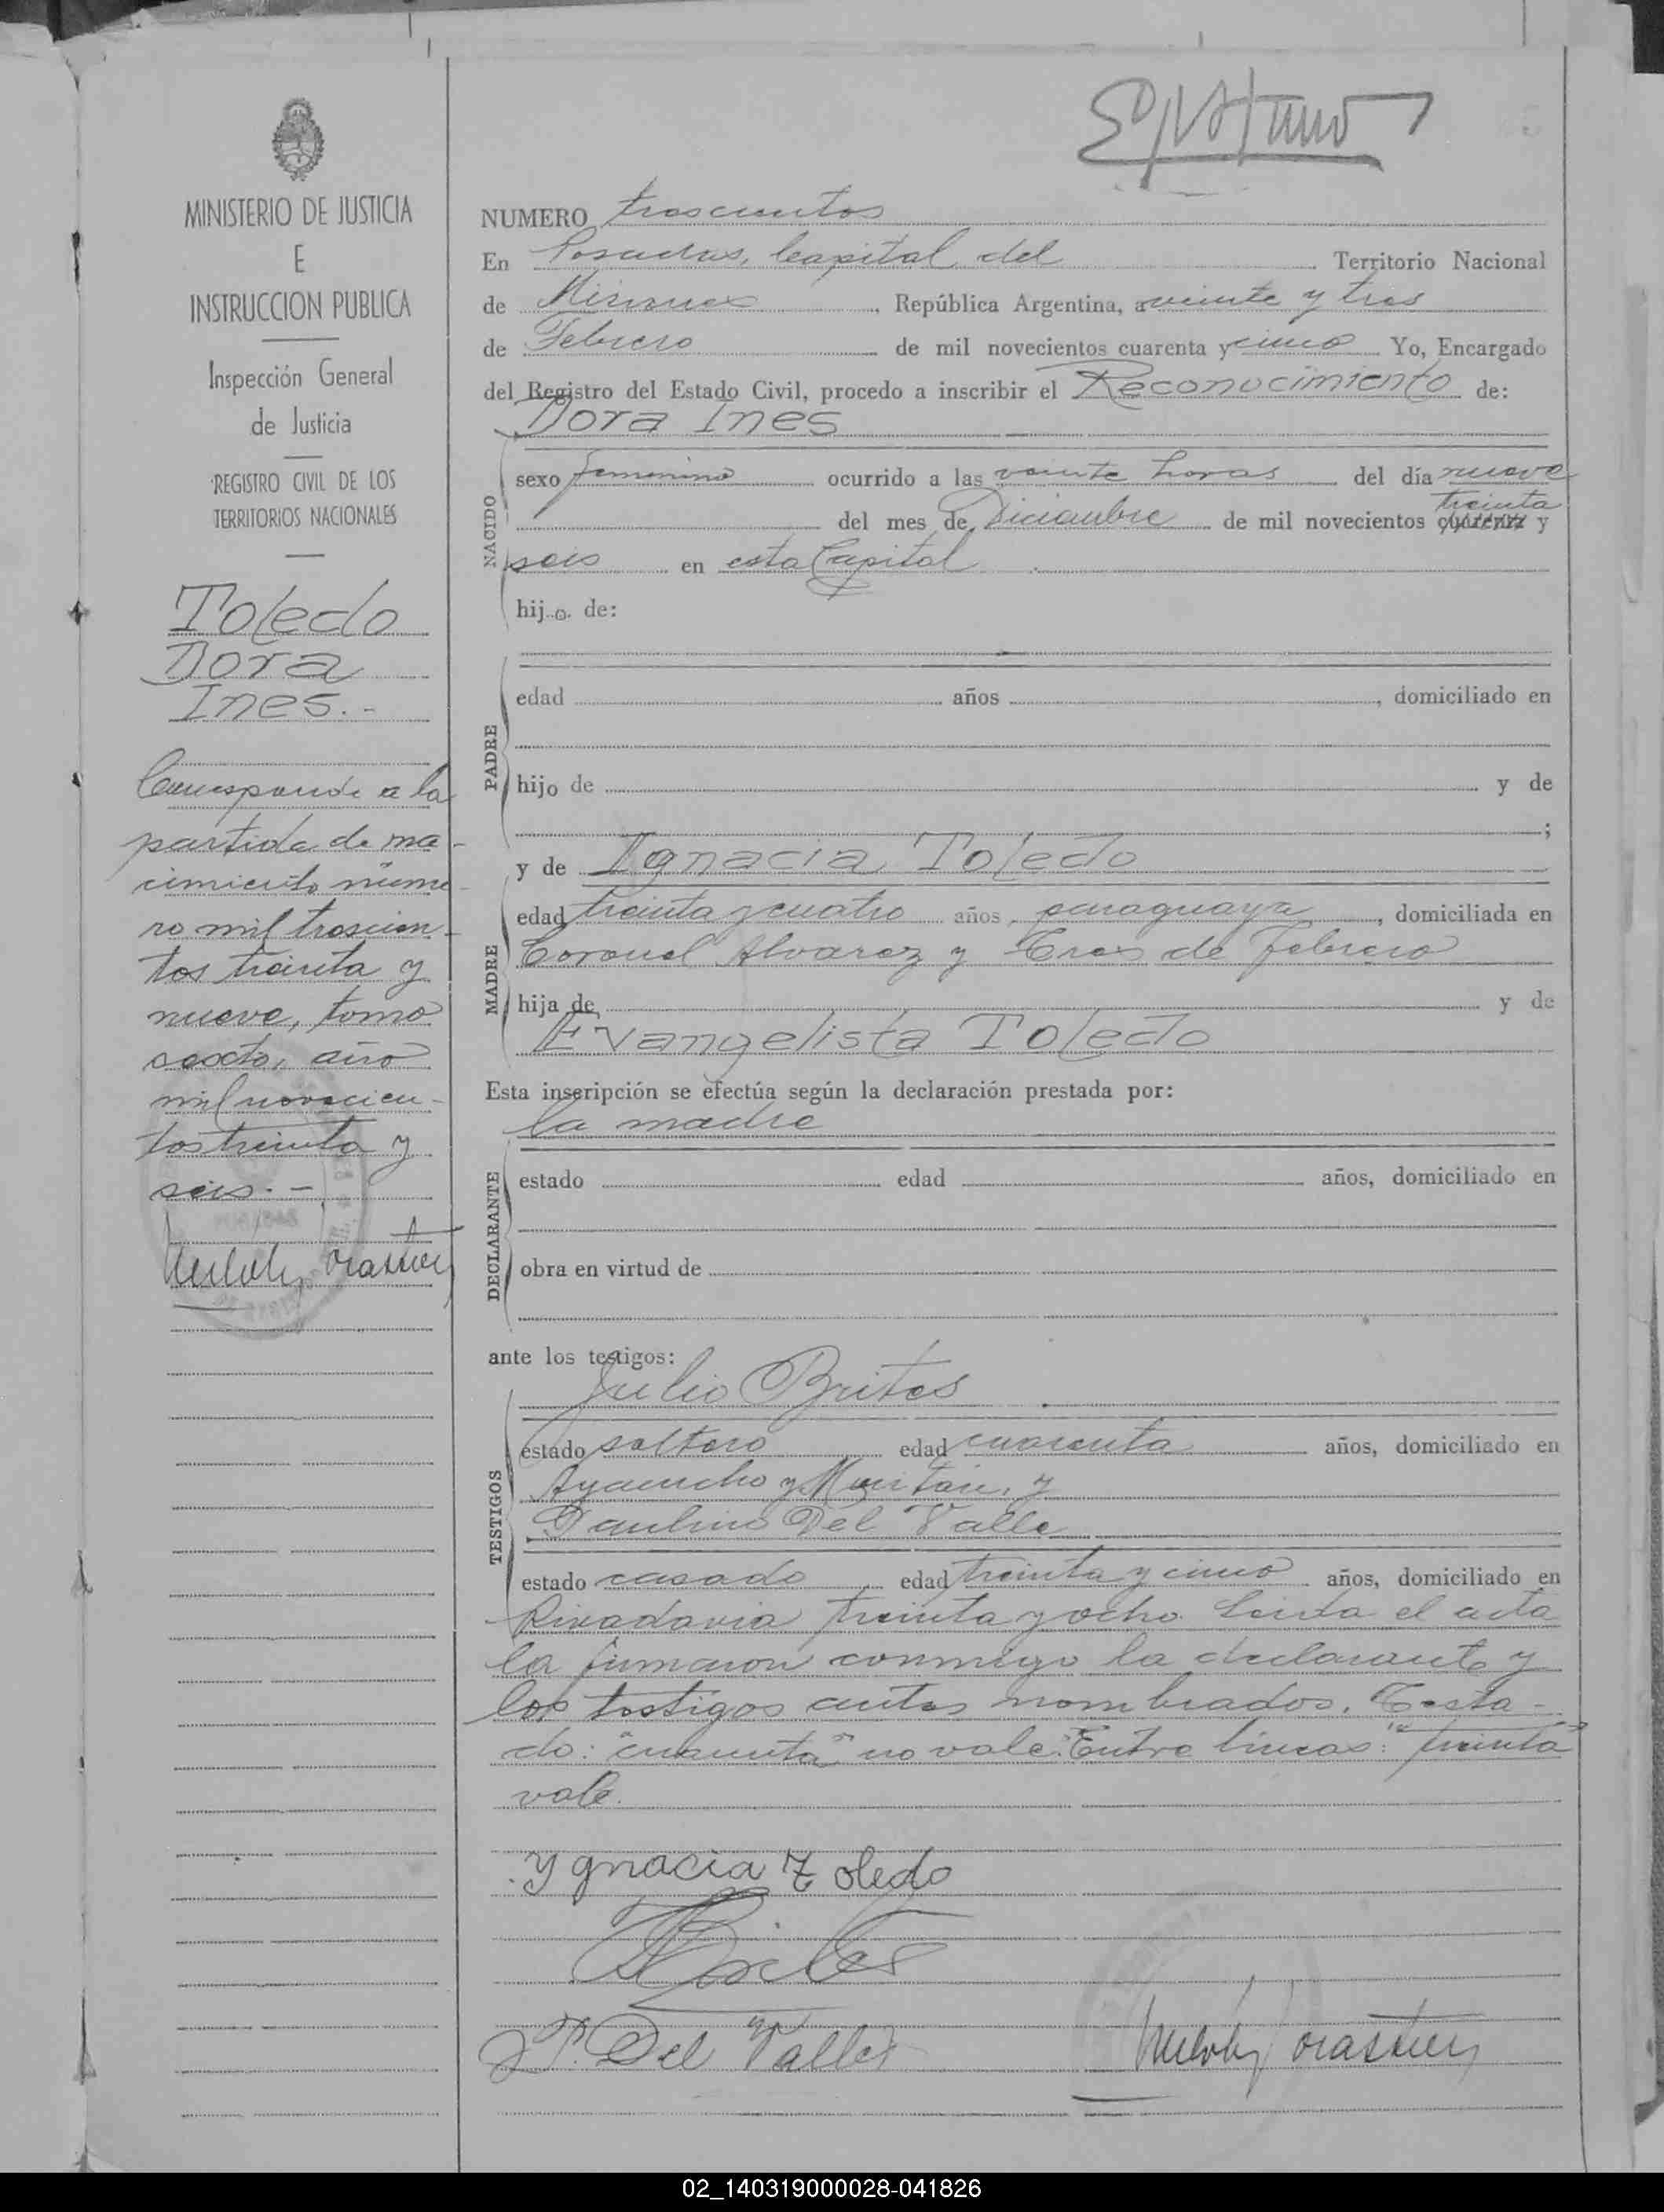 MINISTERIO DE JUSTICIA
E
INSTRUCCION PUBLICA
Inspección General
de Justicia
REGISTRO CIVIL DE LOS
TERRITORIOS NACIONALES
Toledo
Dora
Ines.-
Corresponde a la
partida de na-
cimiento núme-
ro mil trescien-
tos treinta y
nueve, tomo
sexto, año
mil novecien-
tos treinta y
seis.-
NUMERO trescientos
En Posadas, Capital del Territorio Nacional
de Misiones, República Argentina, a veinte y tres
de Febrero de mil novecientos cuarenta y cinco Yo, Encargado
del Registro del Estado Civil, procedo a inscribir el Reconocimiento de:
Dora Ines
NACIDO
sexo femenino ocurrido a las veinte horas del día nueve
treinta
del mes de Diciembre de mil novecientos cuarenta y
seis en esta Capital
hij a de:
PADRE
edad años , domiciliado en
hijo de y de
;
y de Ignacia Toledo
MADRE
edad treinta y cuatro años, paraguaya, domiciliada en
Coronel Alvarez y Tres de Febrero
hija de y de
Evangelista Toledo
Esta inscripción se efectúa según la declaración prestada por:
la madre
DECLARANTE
estado edad años, domiciliado en
obra en virtud de
ante los testigos:
Julio Brites
TESTIGOS
estado soltero edad cuarenta años, domiciliado en
Ayacucho y , y
Paulino Del Valle
estado casado edad treinta y cinco años, domiciliado en
Rivadavia treinta y ocho. Leida el acta
la firmaron conmigo la declarante y
los testigos antes nombrados. Testa-
do: "cuarenta" no vale. Entre lineas: "treinta"
vale.
Ygnacia Toledo
Brites
P. Del Valle
02_140319000028-041826